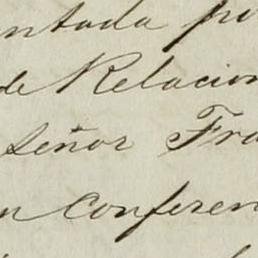 ntada po
de Relacion
Señor Fra
n conferen